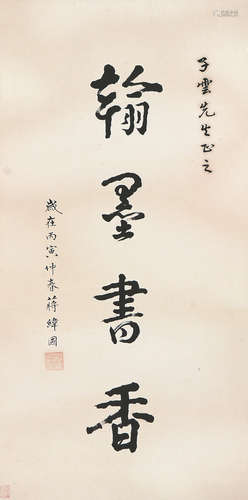 子雲先生正之
翰墨書香
歲在丙寅仲春蔣緯國